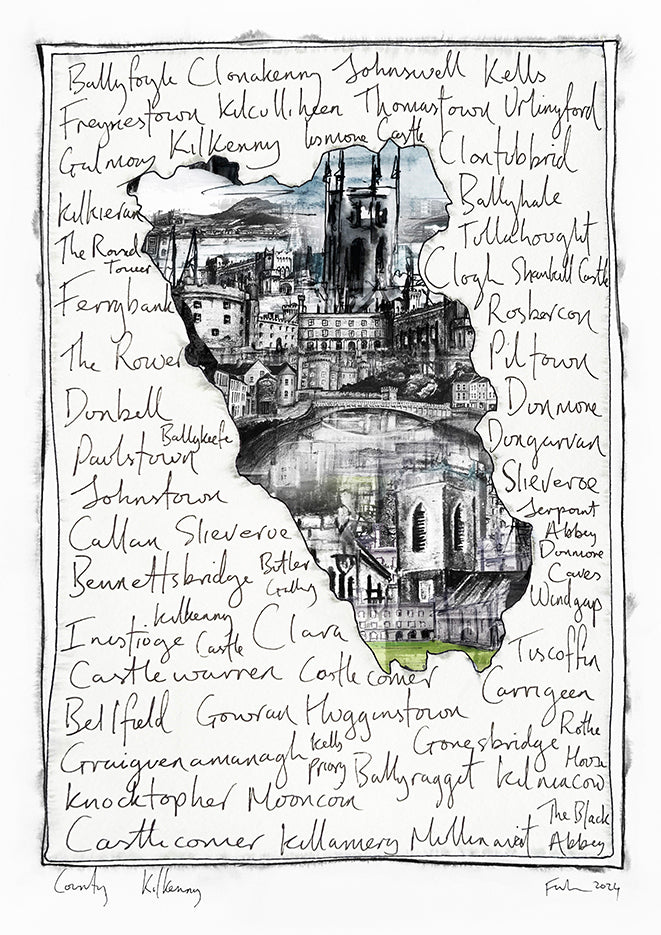 Ballyfoyle Clonakenny Johnswell Kells
Freynestown Kilculliheen Thomastown Urlingford
Galmoy Kilkenny Lismore Castle Clontubbrid
Kilkieran Ballyhale
The Round Tower Tullahought
Clogh Shankill Castle
Ferrybank Rosbercon
The Rower Piltown
Dunbell Dunmore
Ballykeefe Dongarvan
Paulstown
Johnstown Slieveroe
Serpoint Abbey
Callan Slieveroe Dunmore Caves
Bennettsbridge Butler Gallery Windgap
Kilkenny Castle
Inistioge Clara Tuscoffin
Castlewarren Castlecomer Carrigeen
Bellfield Gowran Hugginstown Rothe House
Graiguenamanagh Kells Priory Gonesbridge
Ballyragget Kilmacow
Knocktopher Mooncoin The Black Abbey
Castlecomer Killamery Mullinavat
County Kilkenny 2024